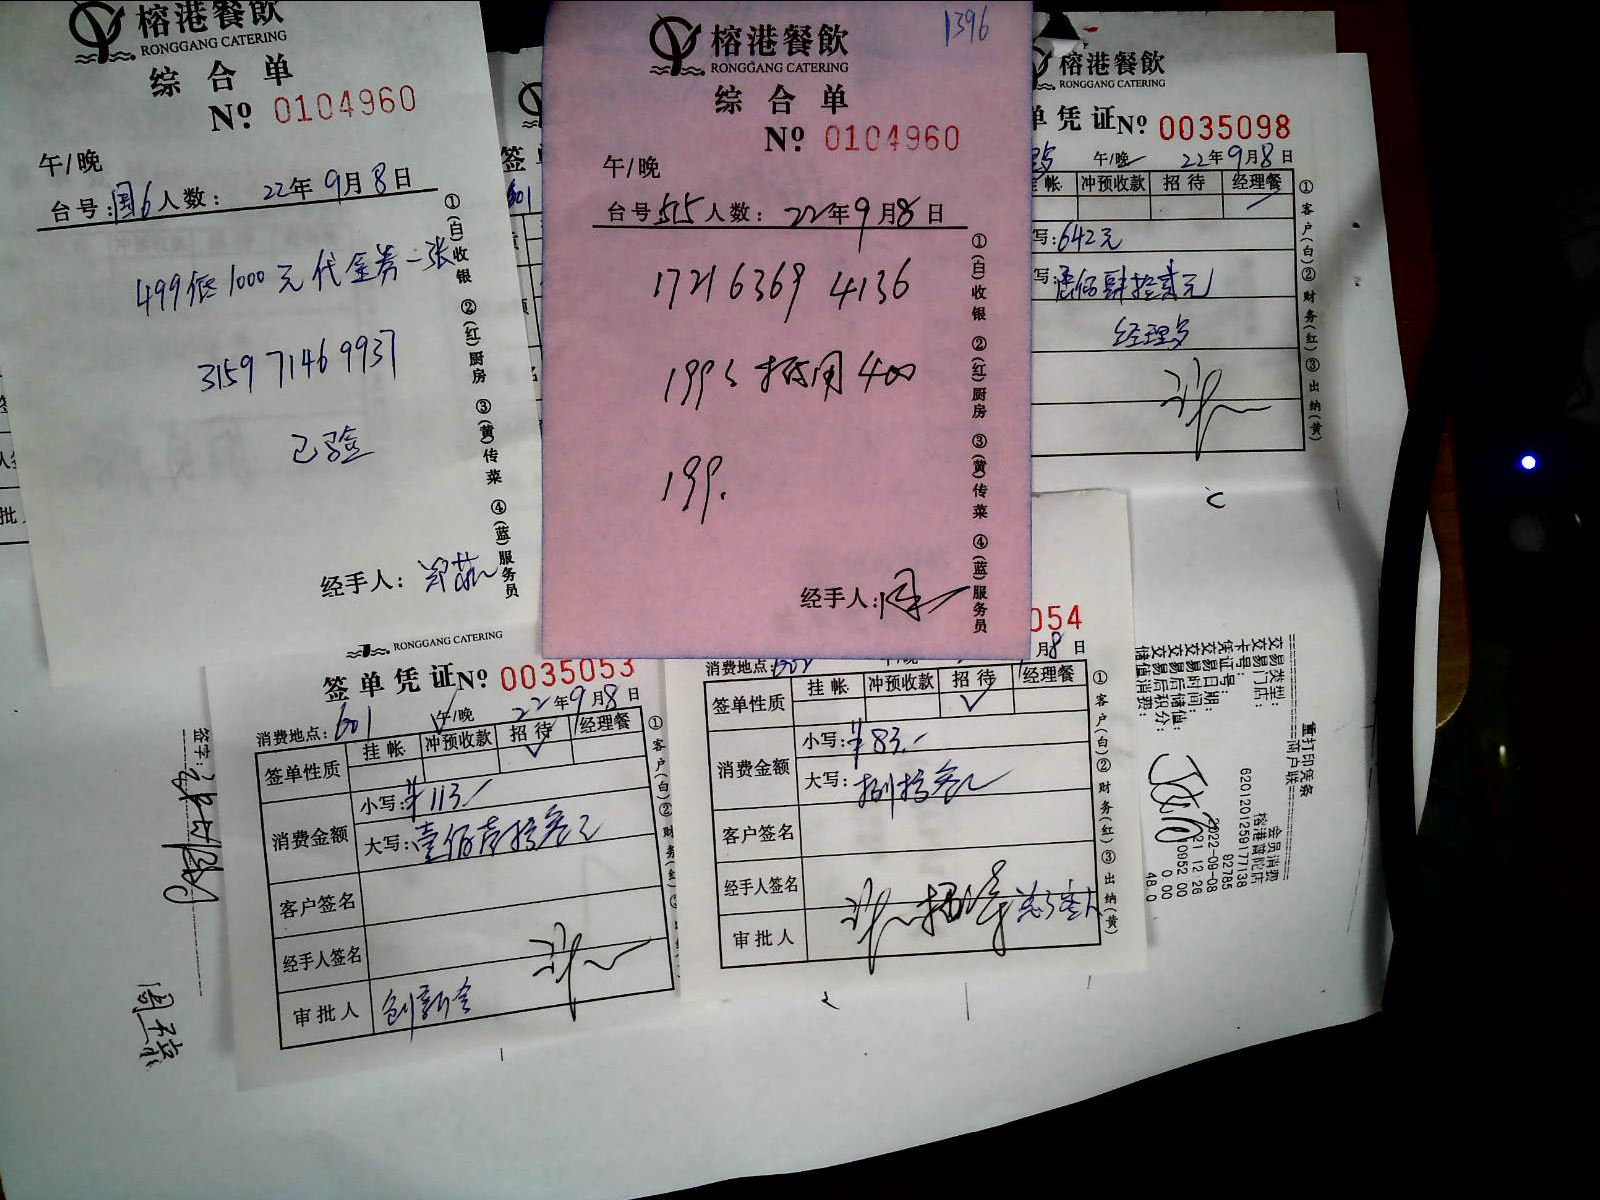 榕港餐飲
RONGGANG CATERING
综合单
Nº 0104960
午/晚
台号:国6 人数: 22年9月8日
499低1000元代金券一张
3159 7146 9937
已验
经手人:
①(白)收银 ②(红)厨房 ③(黄)传菜 ④(蓝)服务员
1396
榕港餐飲
RONGGANG CATERING
综合单
Nº 0104960
午/晚
台号:555 人数: 22年9月8日
1721 6369 4136
199元抵用400
199.
经手人:周
①(白)收银 ②(红)厨房 ③(黄)传菜 ④(蓝)服务员
榕港餐飲
RONGGANG CATERING
单凭证 Nº 0035098
午/晚 22年9月8日
挂帐 冲预收款 招待 经理餐
写:642元
写:陆佰肆拾贰元
①客户(白)②财务(红)③出纳(黄)
RONGGANG CATERING
签单凭证 Nº 0035053
消费地点:601 午/晚 22年9月8日
签单性质 挂帐 冲预收款 招待 经理餐
消费金额 小写:¥113.-
大写:壹佰壹拾叁元
客户签名
经手人签名
审批人
①客户(白)②财
054
月8日
消费地点: 午/晚
签单性质 挂帐 冲预收款 招待 经理餐
消费金额 小写:¥83.-
大写:捌拾叁元
客户签名
经手人签名
审批人
①客户(白)②财务(红)③出纳(黄)
重打印凭条
商户联
交易类型: 会员消费
交易门店: 榕港普陀店
卡号: 6201201259177138
凭证号: 92785
交易日期: 2022-09-08
交易时间: 21:12:26
交易后储值: 0952.00
交易后积分: 0.00
储值消费: 48.0
签字: